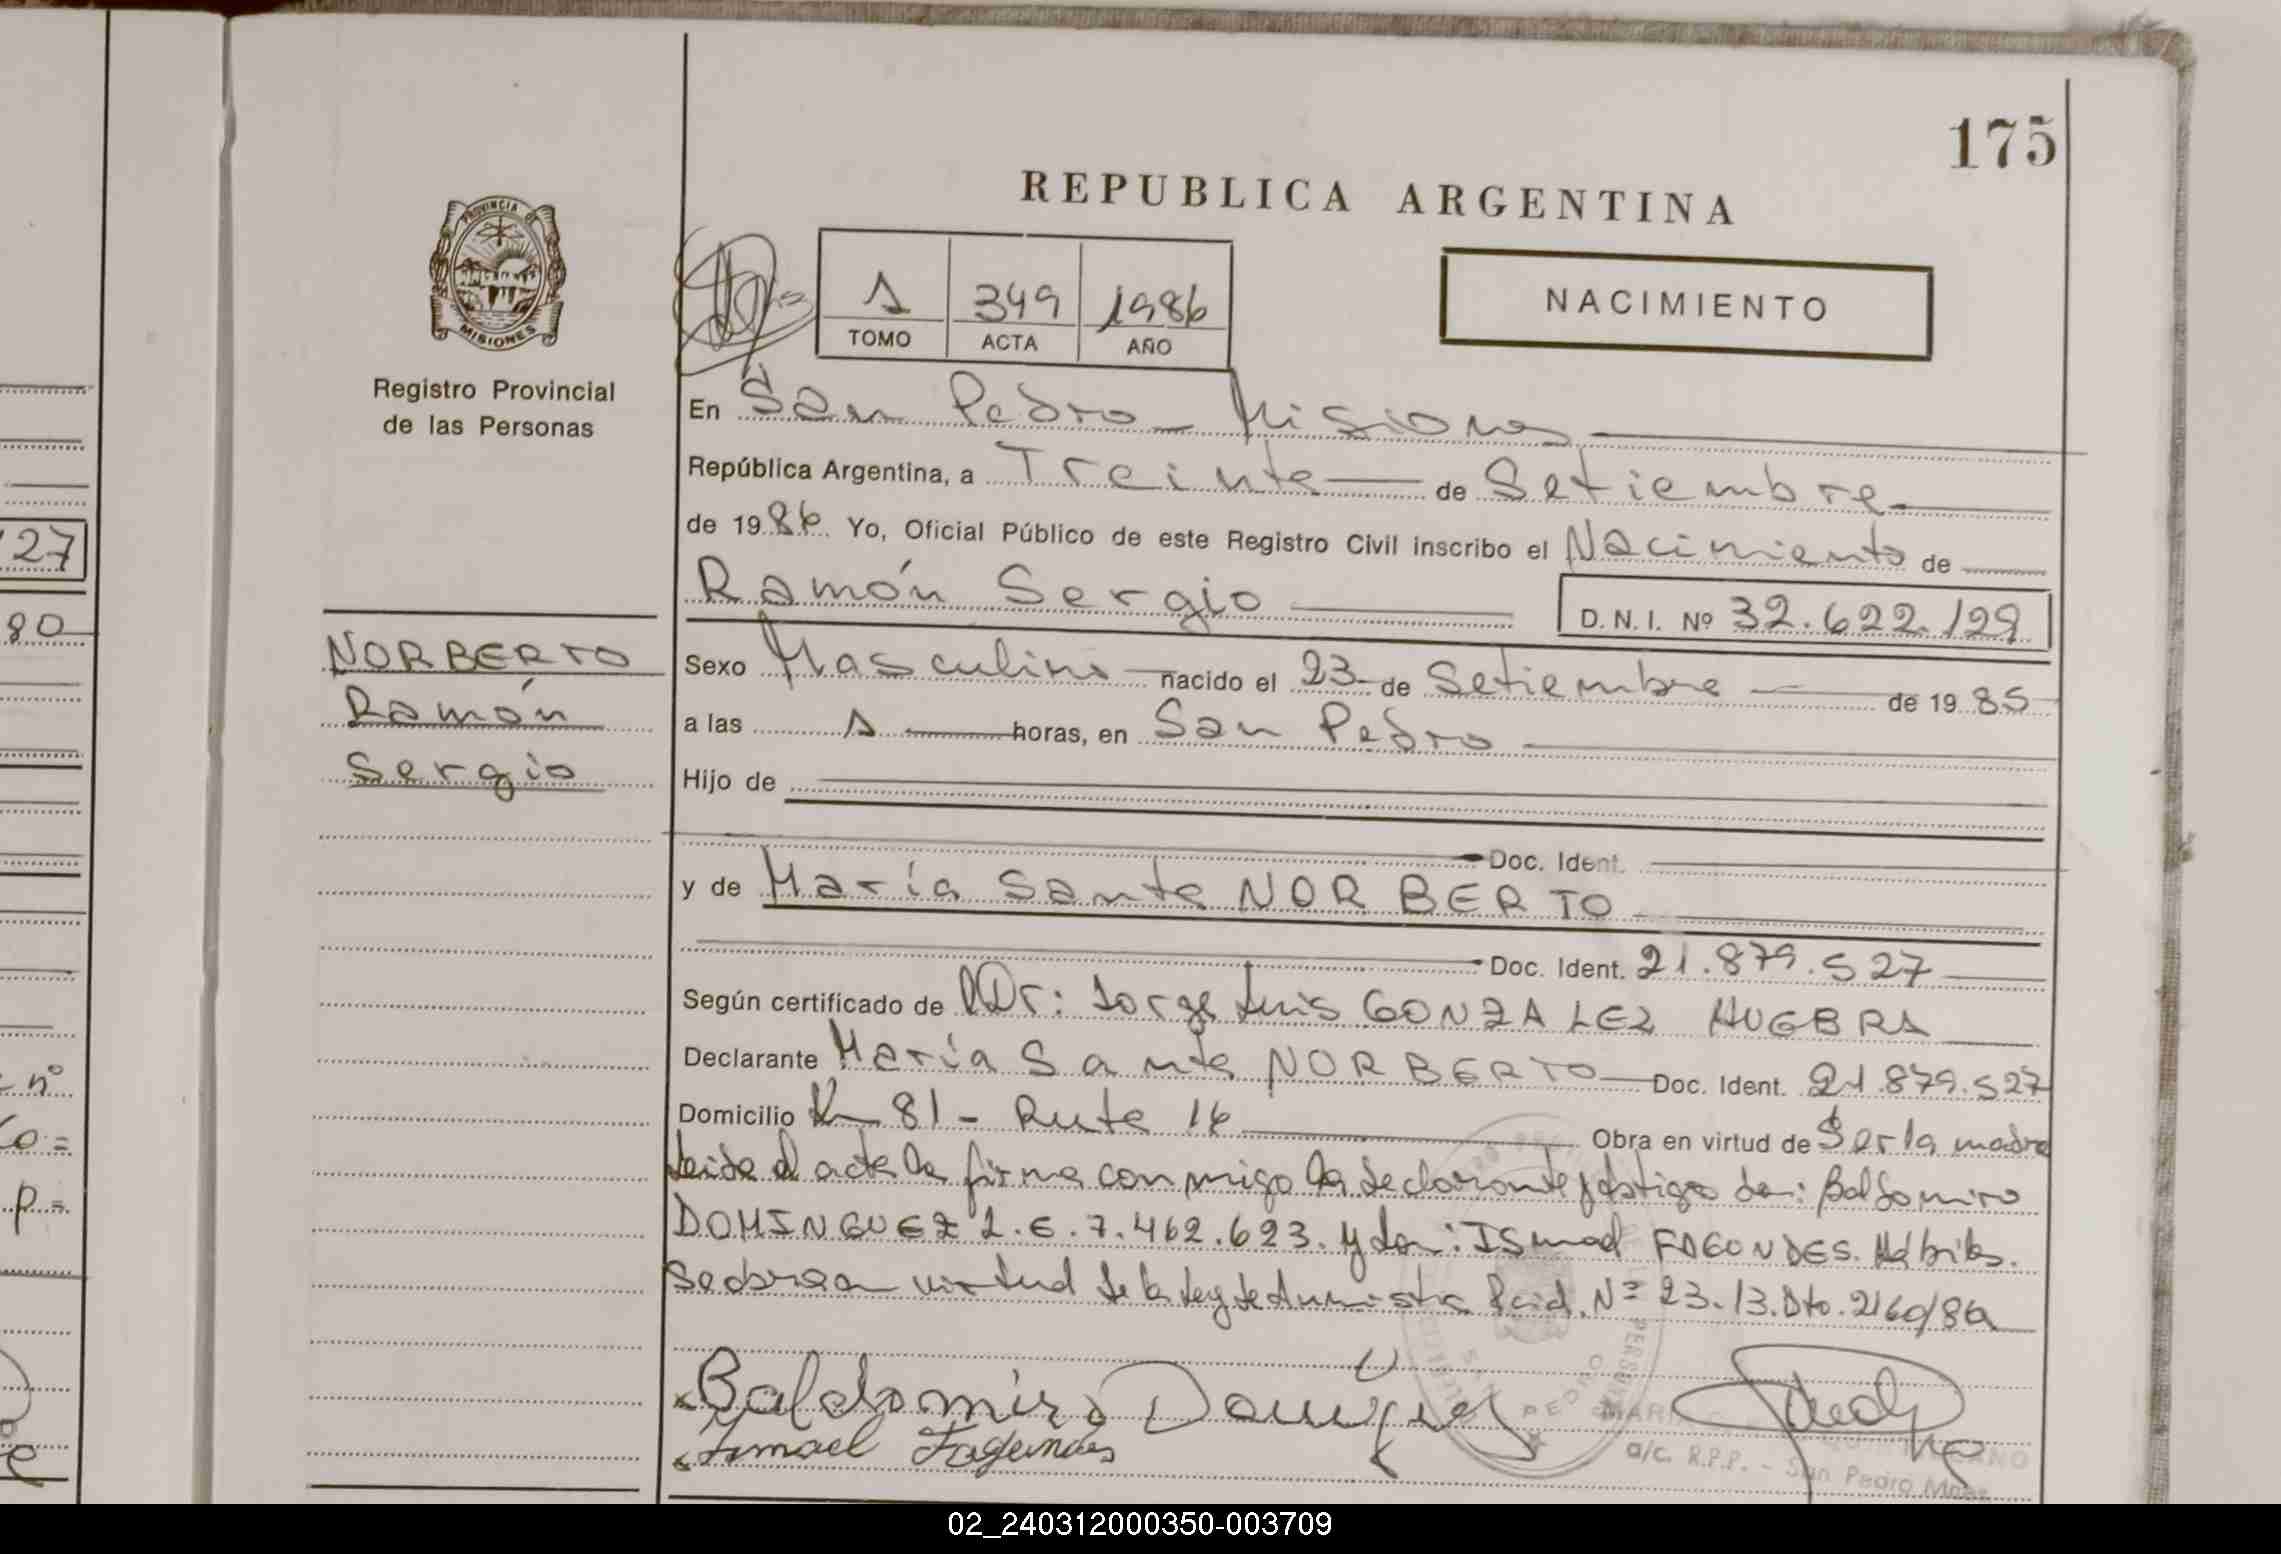 175
REPUBLICA ARGENTINA
PROVINCIA DE
MISIONES
Registro Provincial
de las Personas
1 349 1986
TOMO ACTA AÑO
NACIMIENTO
En San Pedro - Misiones
República Argentina, a Treinta de Setiembre
de 1986. Yo, Oficial Público de este Registro Civil inscribo el Nacimiento de
Ramón Sergio D.N.I. Nº 32.622.129
NORBERTO
Ramón
Sergio
Sexo Masculino nacido el 23 de Setiembre de 1985
a las 1 horas, en San Pedro
Hijo de
Doc. Ident.
y de María Santa NORBERTO
Doc. Ident. 21.879.527
Según certificado de Dr: Jorge Luis GONZALEZ HUEBRA
Declarante María Santa NORBERTO Doc. Ident. 21.879.527
Domicilio K 81 - Ruta 16 Obra en virtud de Ser la madre
leida el acta la firma conmigo la declarante y testigos don: Baldomiro
DOMINGUEZ L.E. 7.462.623. y don: Ismael FAGUNDES. Hábiles.
Se obra en virtud de la ley de Amnistia Nº 23.13. Dto. 2160/86
Baldomiro Domínguez
Ismael Fagundes
a/c. R.P.P. - San Pedro Mnes.
127
80
nº
02_240312000350-003709